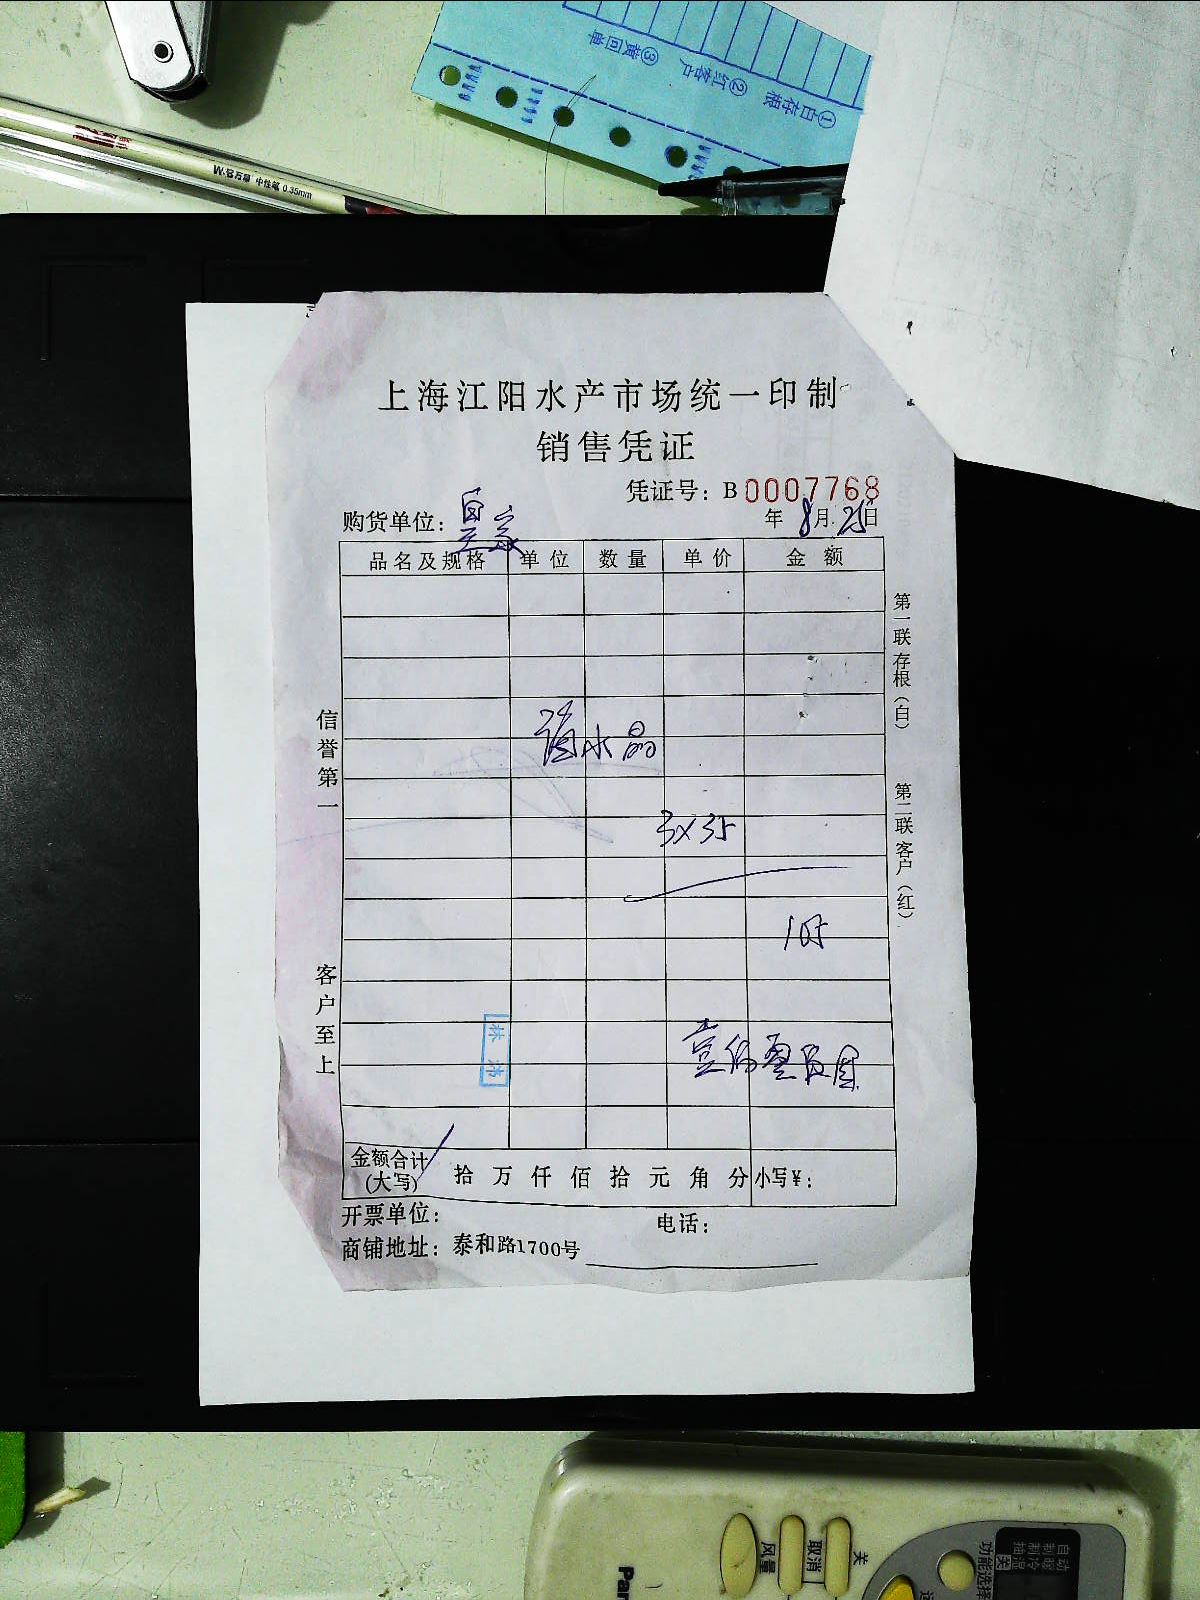 ③黄回单
②红客户
①白存根
W·客万事 中性笔 0.35mm
上海江阳水产市场统一印制
销售凭证
凭证号：B0007768
购货单位：皇家
年 8月 25日
品名及规格 单位 数量 单价 金额
水晶
3×35
105
信誉第一
客户至上
第一联存根（白）
第二联客户（红）
金额合计（大写） 拾 万 仟 佰 拾 元 角 分 小写¥：
开票单位： 电话：
商铺地址：泰和路1700号
风量
取消
关
功能选择
自动
制冷
关